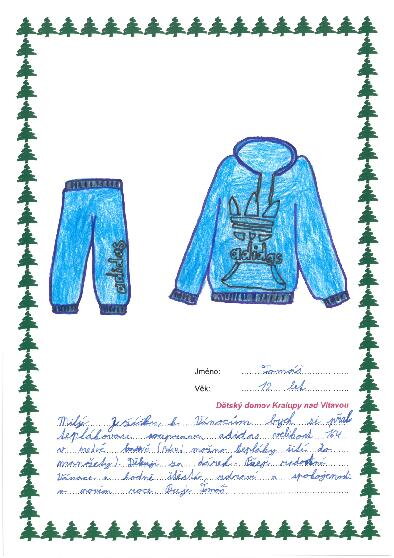 adidas
adidas
Jméno: Tomáš
Věk: 12 let
Dětský domov Kralupy nad Vltavou
Milý Ježíšku, k Vánocům bych si přál
teplákovou soupravu adidas velikost 164
v modré barvě (jde možno tepláky užší do
manžety). Děkuji za dárek. Přeji radostné
Vánoce a hodně štěstí, zdraví a spokojenosti
v novém roce. Tomáš